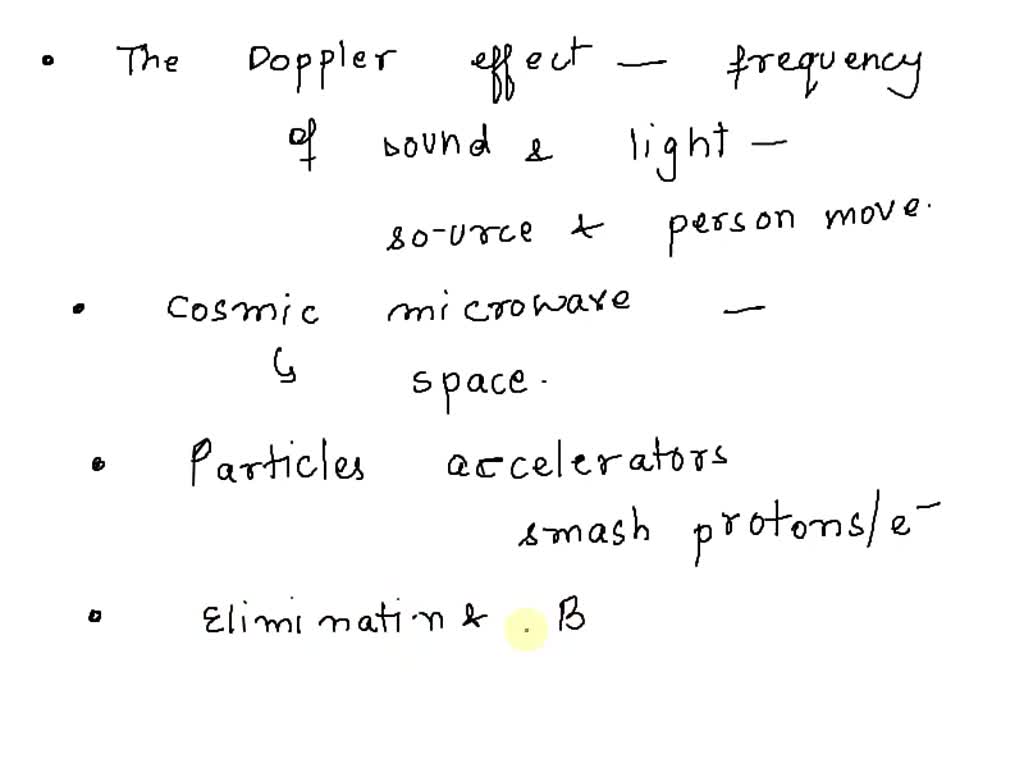 • The Doppler effect — frequency
of sound & light —
so-urce & person move.
• Cosmic microware —
↳ space.
• Particles accelerators
smash protons/e⁻
• Eliminatin & . B